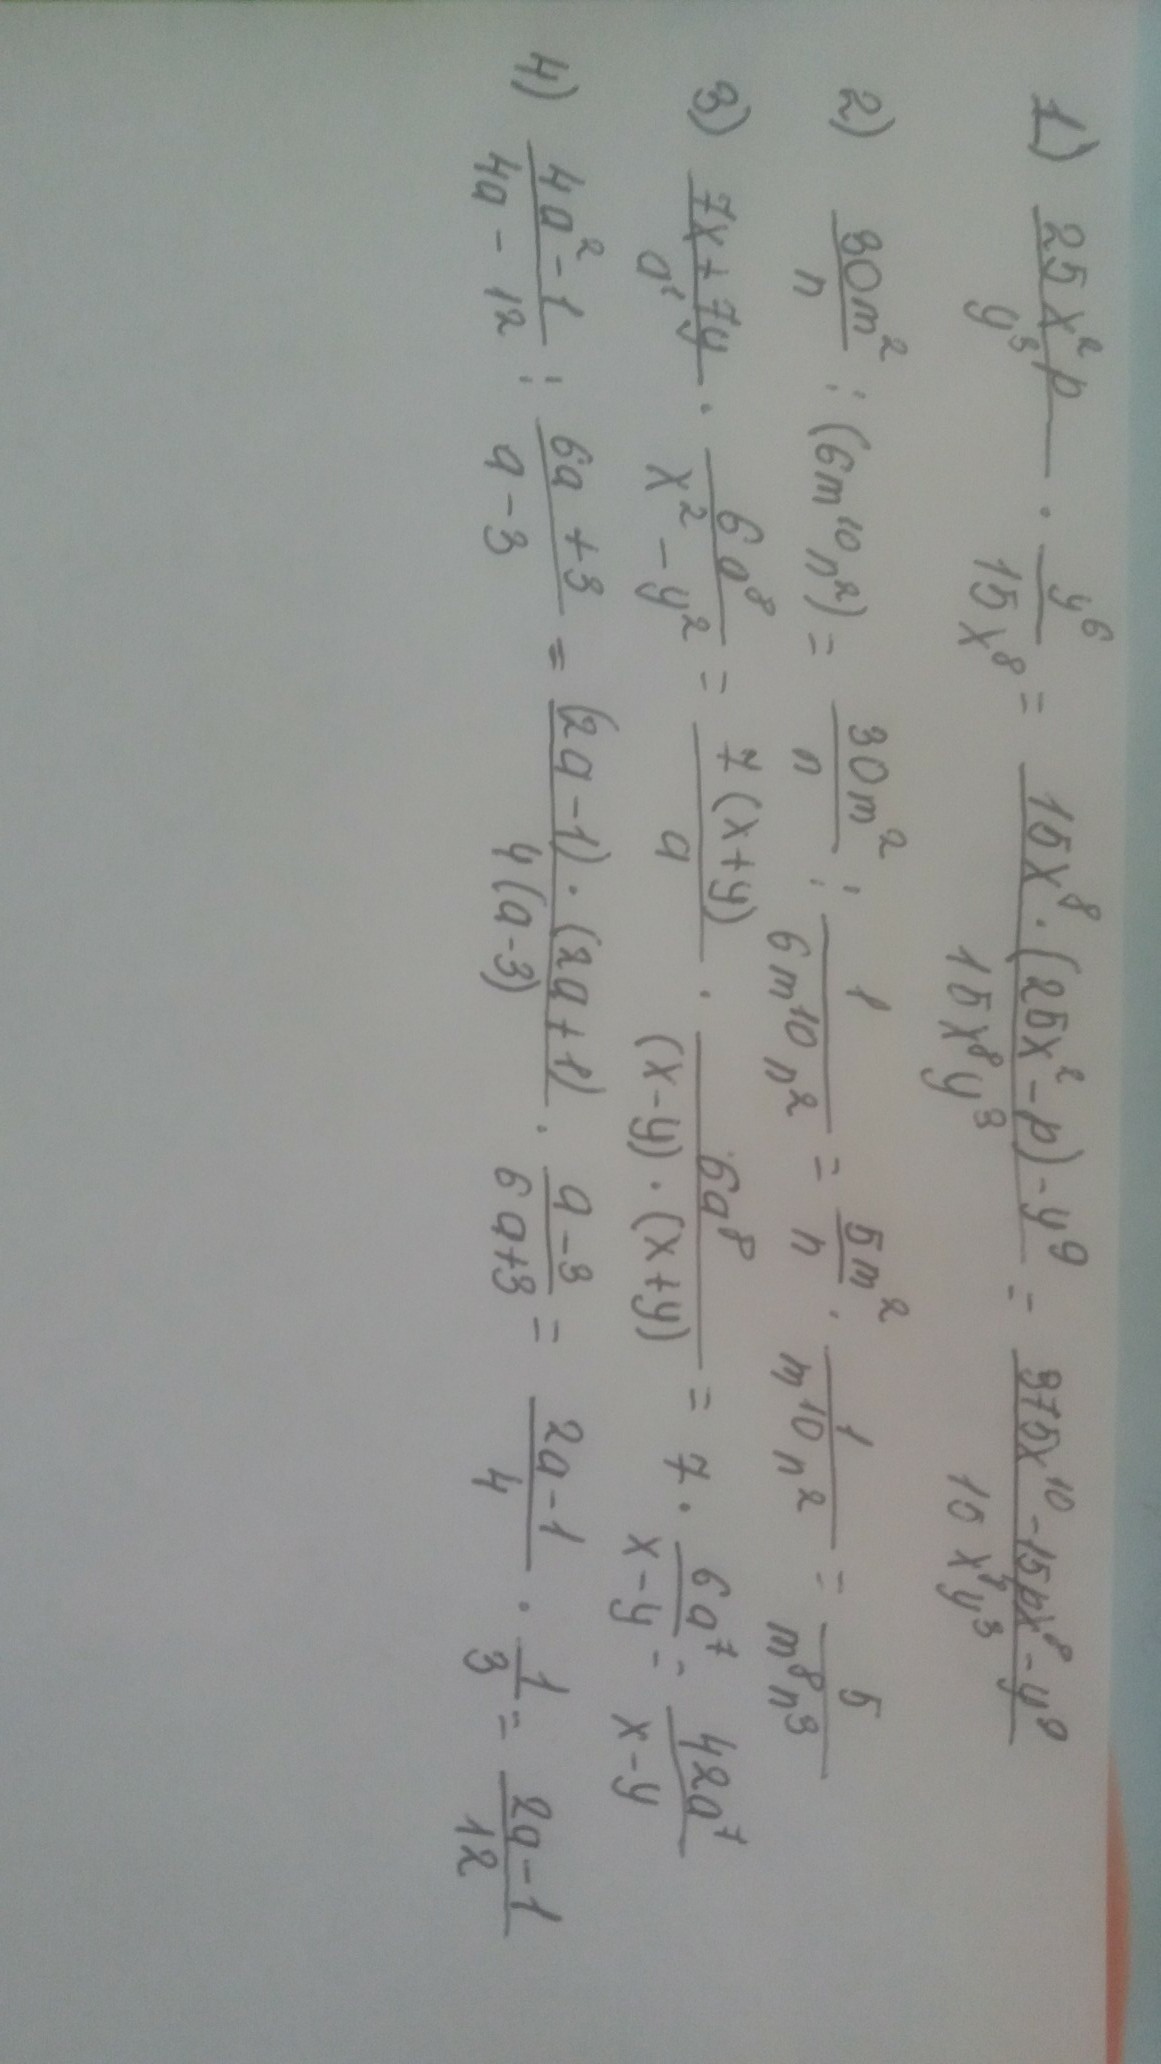 1) 25x²p/y³ · y⁶/15x⁸ = 15x⁸·(25x²-p)-y⁹/15x⁸y³ = 375x¹⁰-15px⁸-y⁹/15x⁸y³
2) 30m²/n : (6m¹⁰n²) = 30m²/n : 1/6m¹⁰n² = 5m²/n · 1/m¹⁰n² = 5/m⁸n³
3) 7x+7y/a¹ · 6a⁸/x²-y² = 7(x+y)/a · 6a⁸/(x-y)·(x+y) = 7 · 6a⁷/x-y = 42a⁷/x-y
4) 4a²-1/4a-12 : 6a+3/a-3 = (2a-1)·(2a+1)/4(a-3) · a-3/6a+3 = 2a-1/4 · 1/3 = 2a-1/12